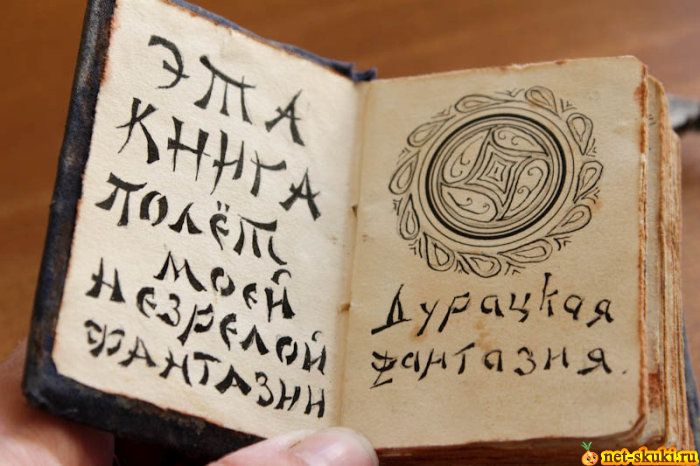 ЭТА
КНИГА
ПОЛЁТ
МОЕЙ
НЕЗРЕЛОЙ
ФАНТАЗИИ
Дурацкая
фантазия.
net-skuki.ru